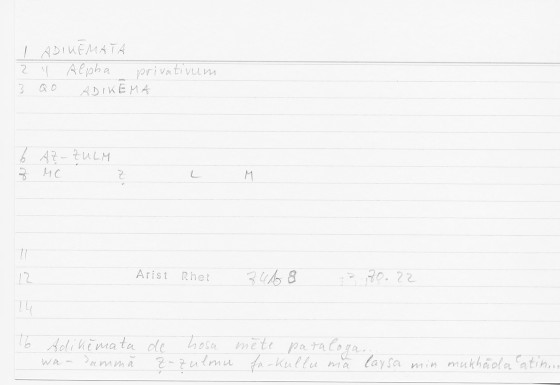 1 ADIKĒMATA
2 4 Alpha privativum
3 GO ADIKĒMA
6 AẒ-ẒULM
8 MC Ẓ L M
11
12 Arist Rhet 22
14
16 Adikēmata de hosa mēte paraloga..
wa-ʾammā ẓ-ẓulmu fa-kullu mā laysa min mukhādaʿatin...